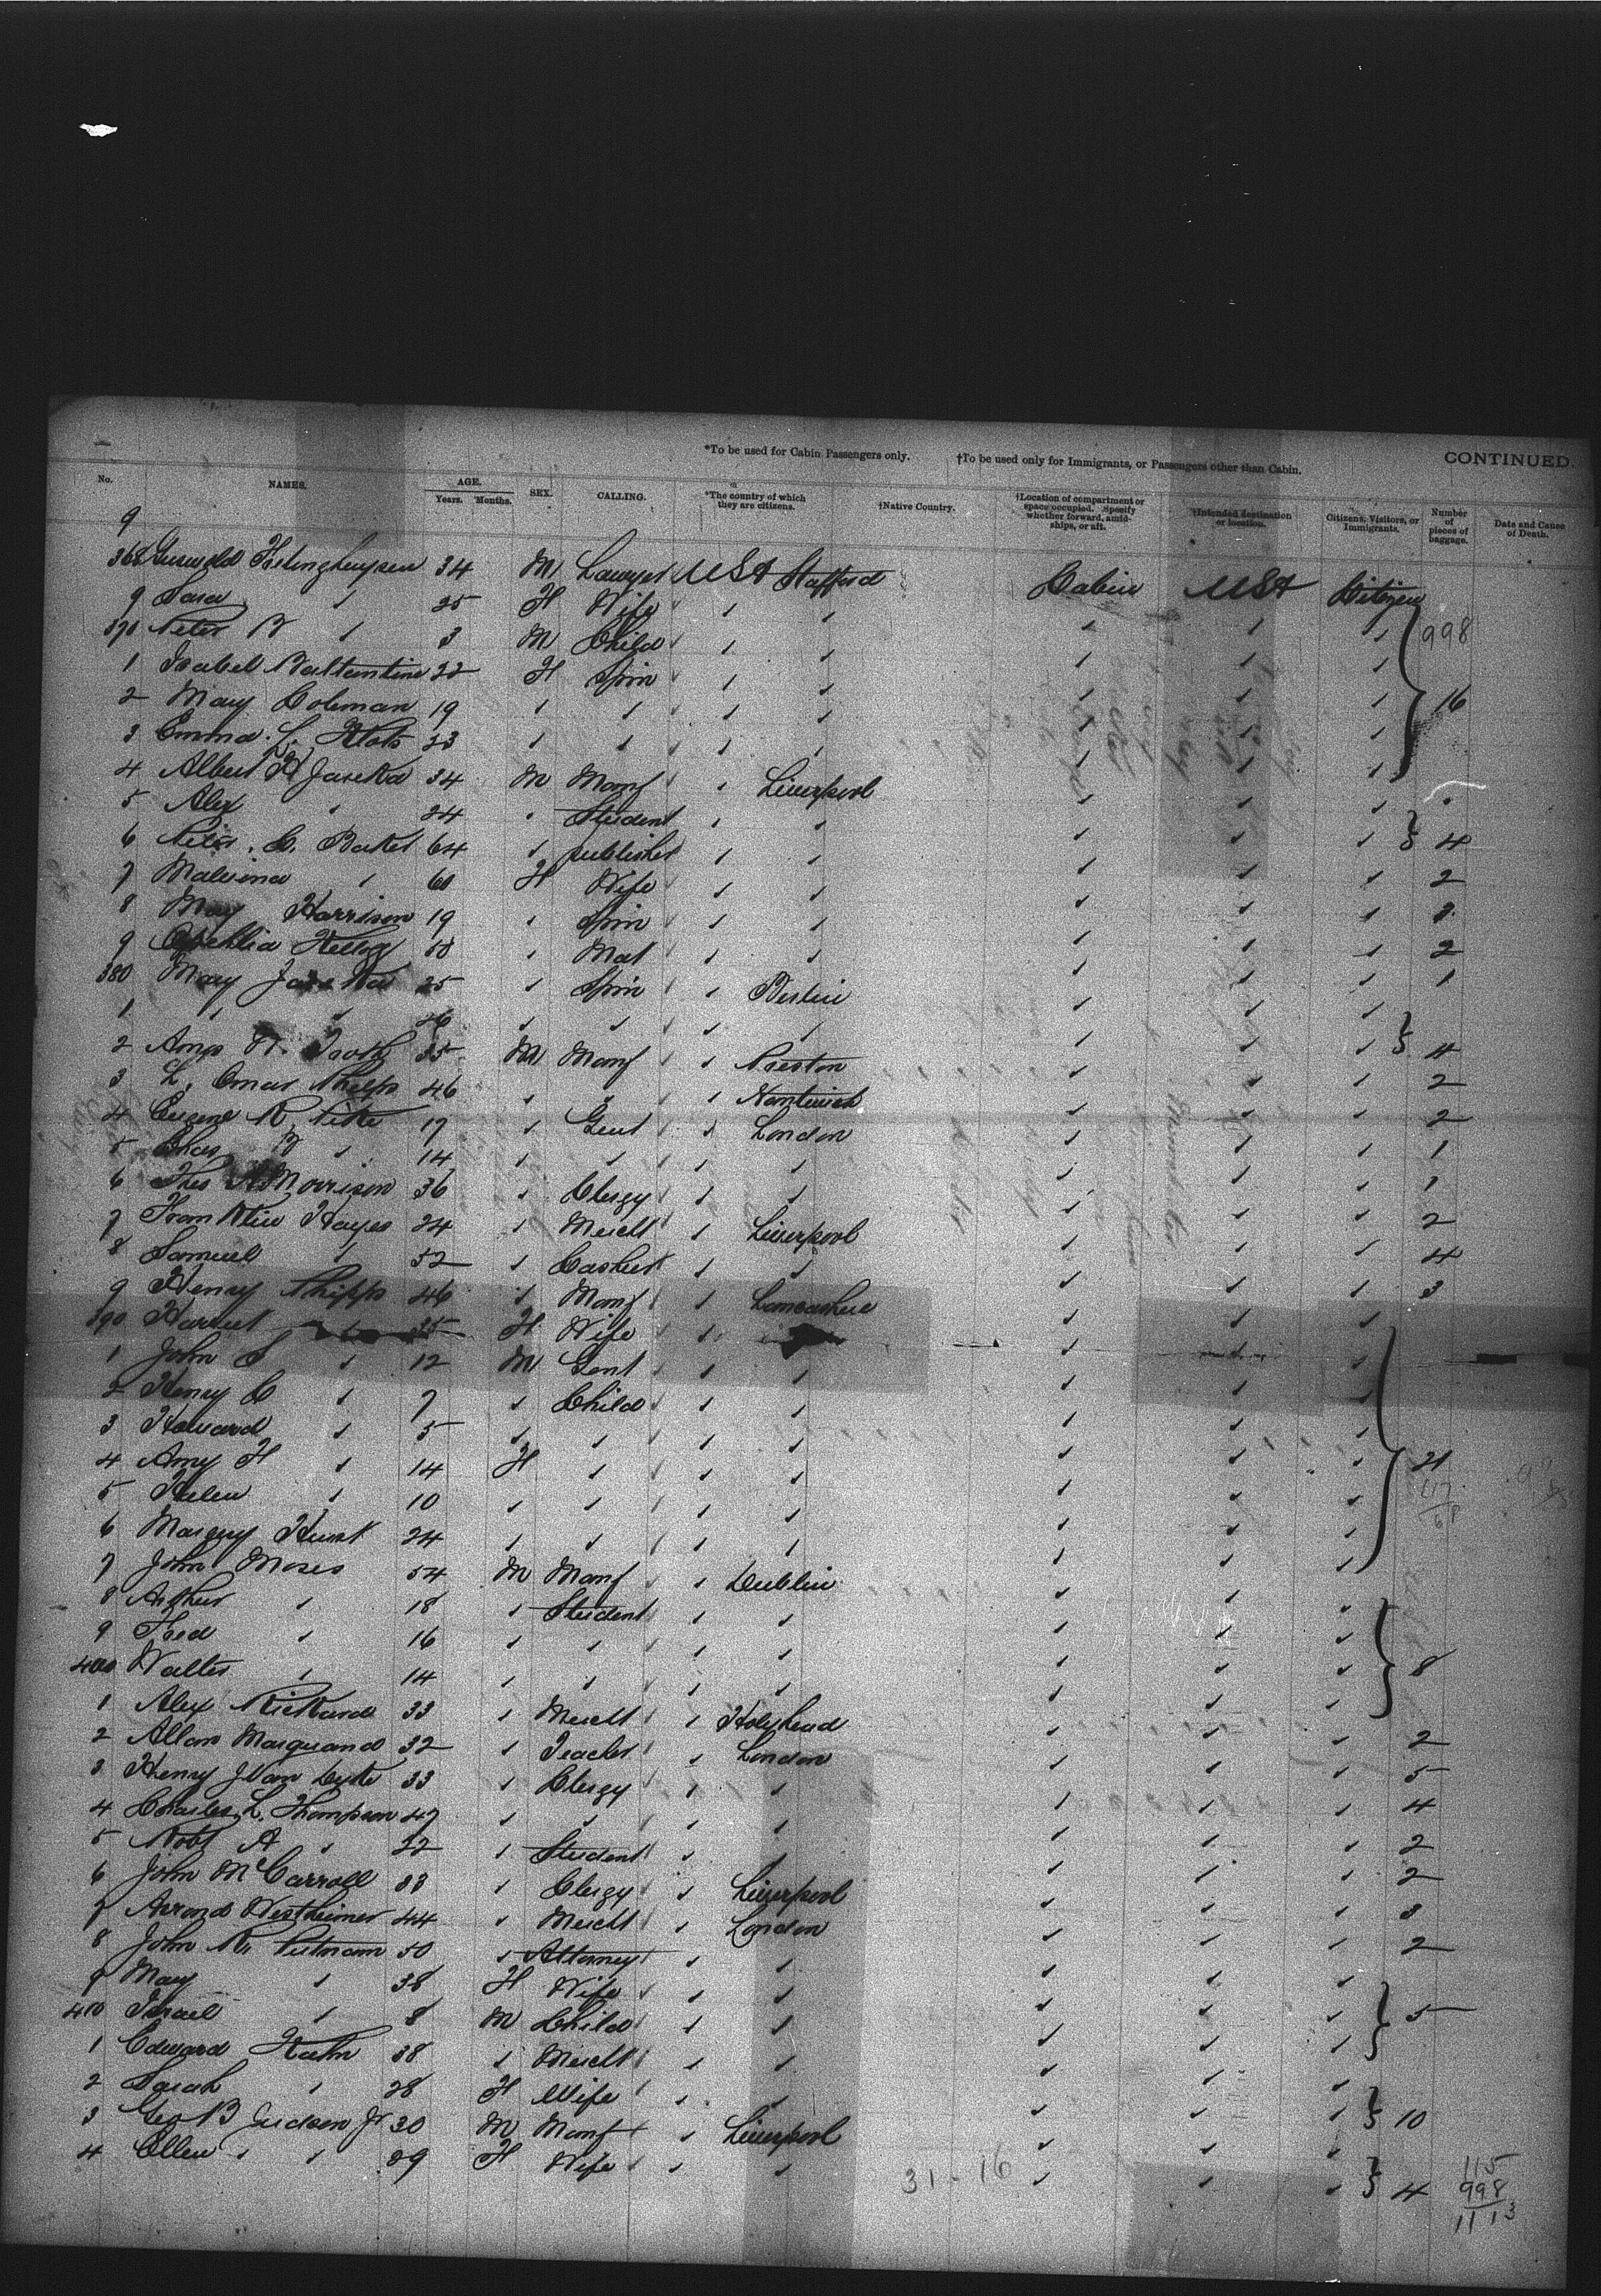 *To be used for Cabin Passengers only. †To be used only for Immigrants, or Passengers other than Cabin. CONTINUED.
No. NAMES. AGE. Years. Months. SEX. CALLING. *The country of which they are citizens. †Native Country. †Location of compartment or space occupied. Specify whether forward, amidships, or aft. †Intended destination or location. Citizens, Visitors, or Immigrants. Number of pieces of baggage. Date and Cause of Death.
9
368 Frelinghuysen 34 M Lawyer USA Stafford Cabin USA Citizen
9 Sara 25 F Wife 998
370 Peter B 3 M Child
1 Isabel Ballantine 22 F Spin
2 Mary Coleman 19 16
3 Emma L. Klots 23
4 Albert H Jaretka 34 M Manf Liverpool
5 Alex 24 Student
6 Peter C. Baker 64 publisher 4
7 Malvina 60 F Wife 2
8 May Harrison 19 Spin
9 Kellogg 50 Mat 2
380 May 25 Spin Berlin 1
1 26
2 Amos H. Trott 35 M Manf Preston 4
3 L. Omar Phelps 46 Nantwich 2
4 Eugene R. Pitte 17 Gent London 2
5 Chas B 14 1
6 Thos A Morrison 36 Clergy 1
7 Franklin Hayes 24 Mercht Liverpool 2
8 Samuel 52 Cashier 4
9 Henry Phipps 46 Manf Lancashire 3
390 Harriet 35 F Wife
1 John S 12 M Gent
2 Henry C 7 Child
3 Howard 5
4 Amy F 14 F 21
5 Helen 10
6 Hunt 24
7 John Moses 54 M Manf Dublin
8 Arthur 18 Student
9 Fred 16
400 Walter 14 8
1 Alex Rickard 33 Mercht Holyhead
2 Allan Marquand 32 Teacher London 2
3 Henry J Van Dyke 33 Clergy 5
4 Charles L. Thompson 47 4
5 Robt A 22 Student 2
6 John McCarroll 33 Clergy Liverpool 2
7 Westheimer 44 Mercht London 3
8 John R. Putnam 50 Attorney 2
9 Mary 38 F Wife
410 Israel 8 M Child 5
1 Edward Kuhn 38 Mercht
2 Sarah 28 F Wife
3 Geo B Judson Jr 30 M Manf Liverpool 10
4 Ellen 29 F Wife 4
31-16
115
998
1113